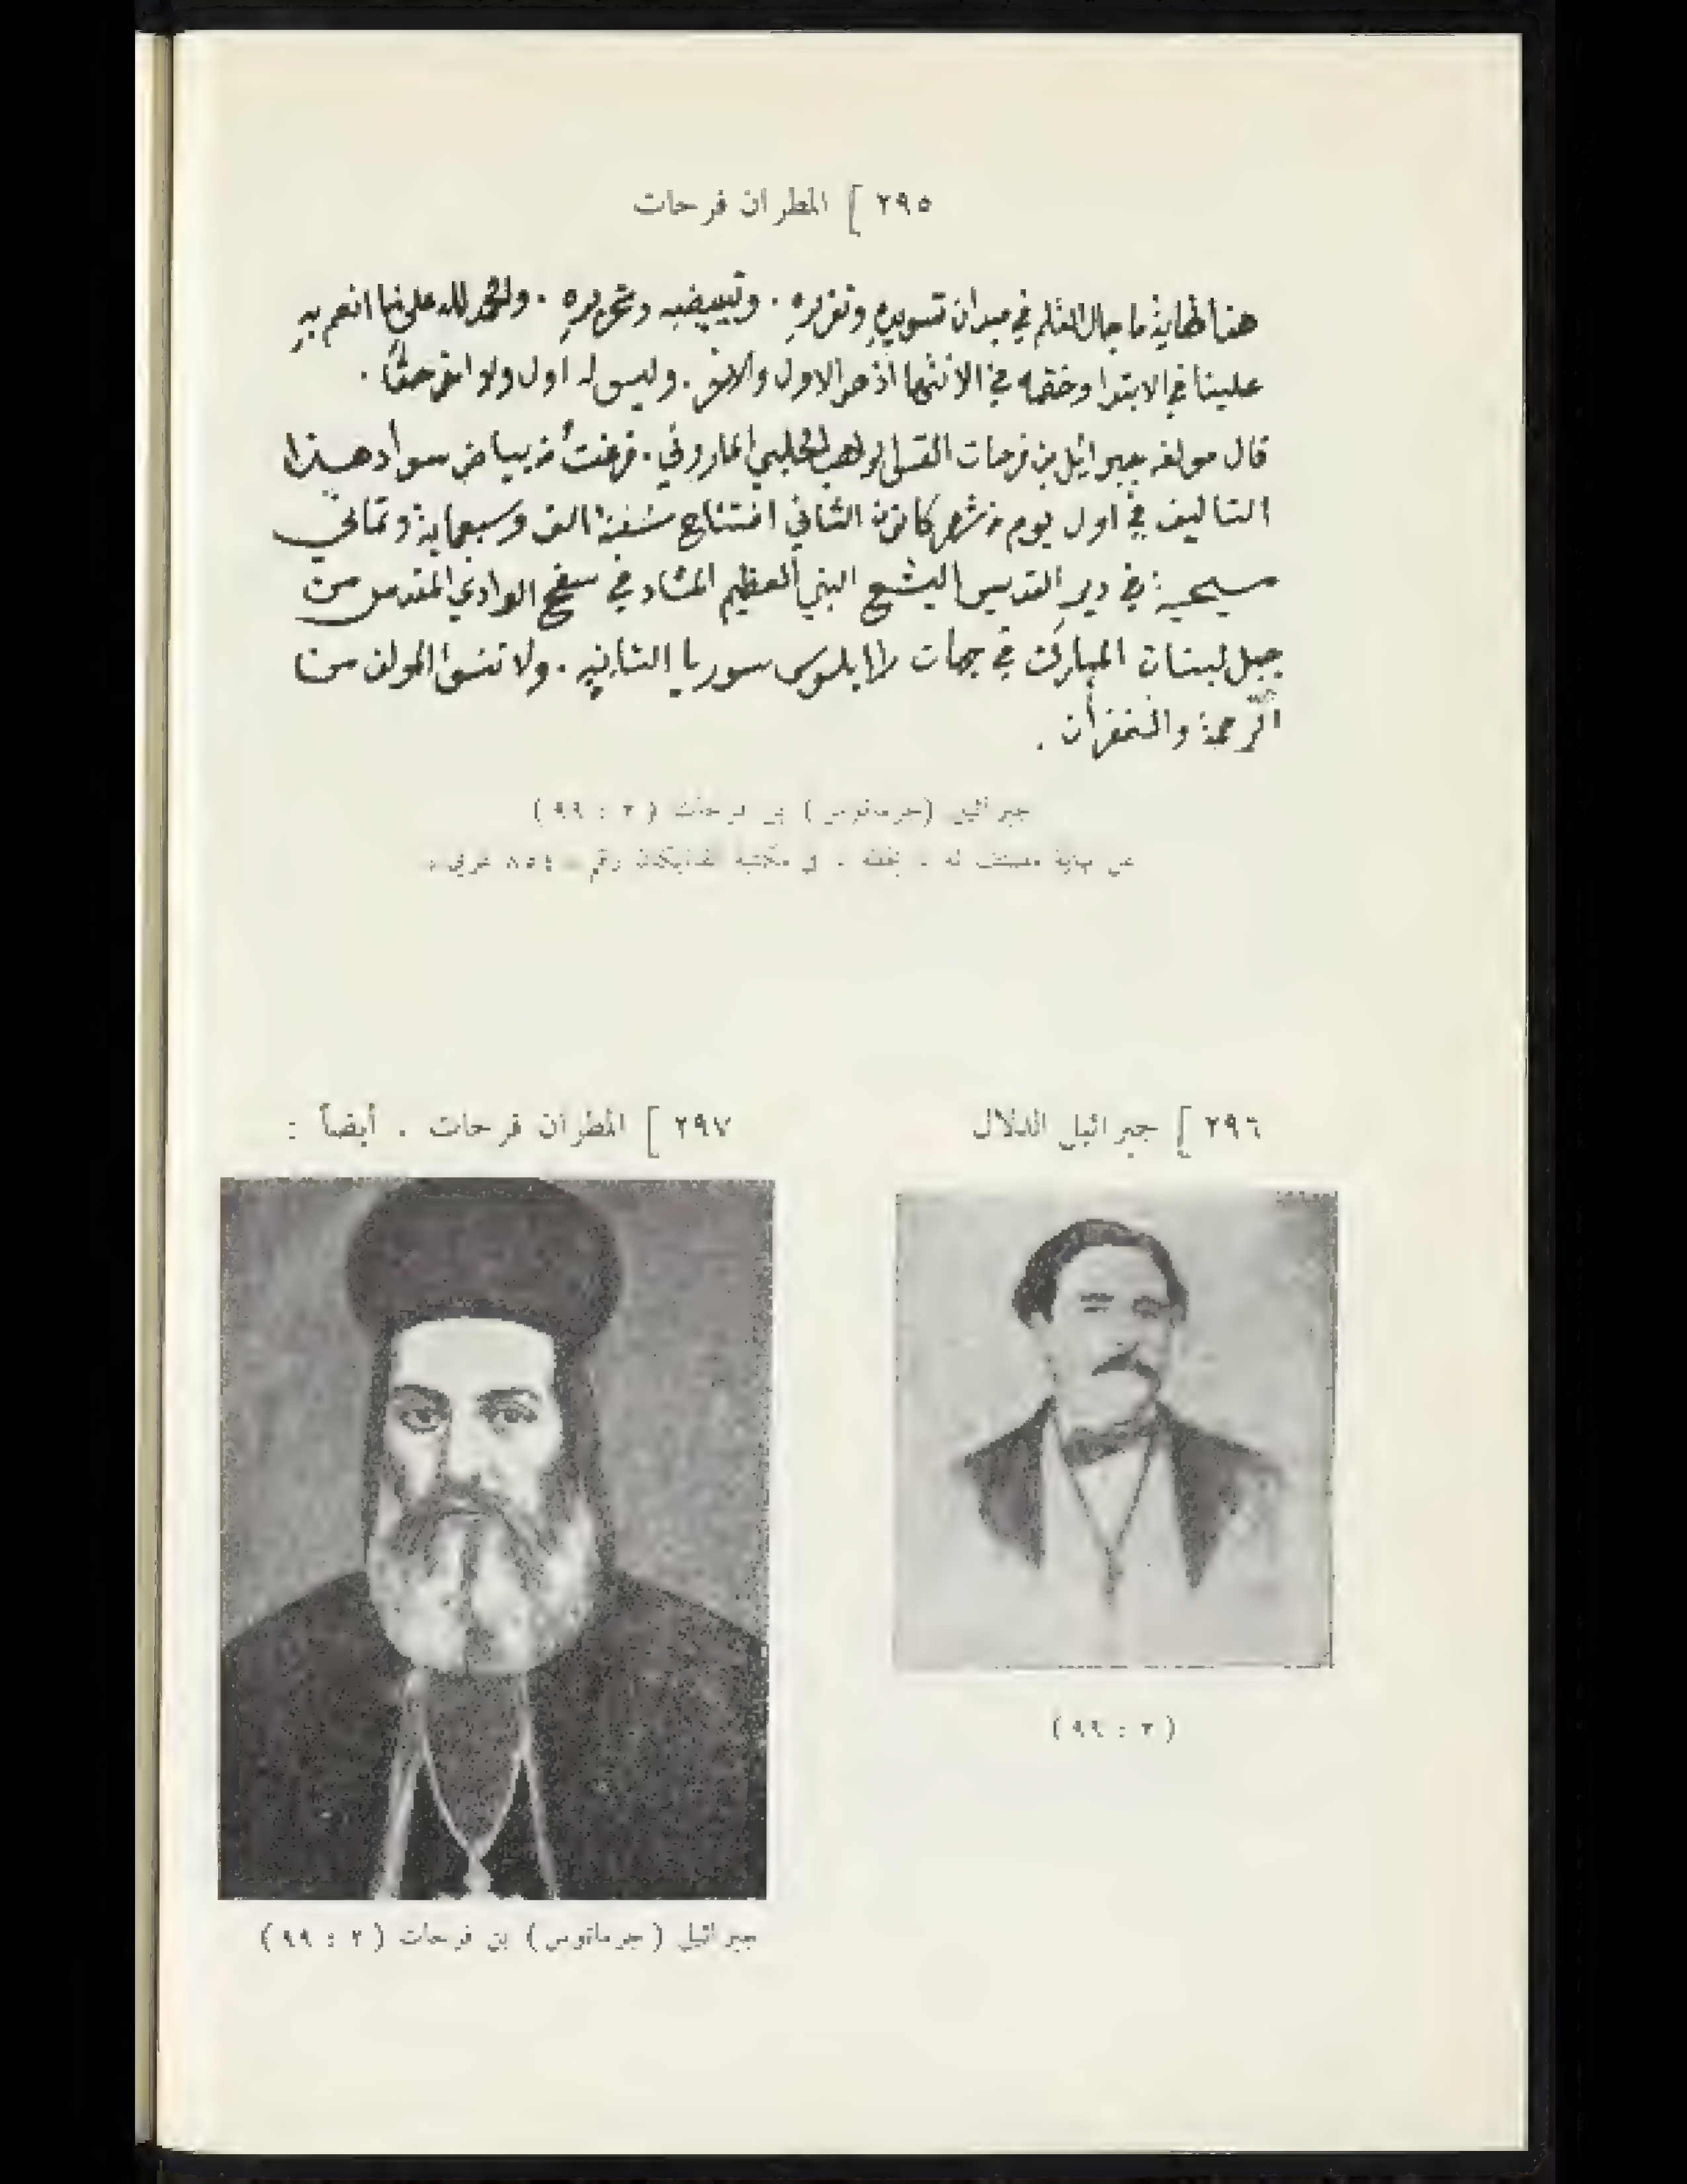 ٢٩٥ ] المطران فرحات
هنا نهاية ما جال القلم في ميدان تسويده وتقريره . وتبييضه وتحريره . والحمد لله على ما انعم به
علينا في الابتدا وختمه في الانتها اذ هو الاول والاخر . وليس له اول ولا اخر حقًا .
قال مولفه جبرائيل بن فرحات القس الراهب الحلبي الماروني . فرغتُ من بياض سواد هذا
التاليف في اول يوم من شهر كانون الثاني افتتاح سنة الف وسبعماية وثماني
مسيحية في دير القديس اليشع النبي العظيم المشاد في سفح الوادي المقدس من
جبل لبنان المبارك في جهات طرابلوس سوريا الثانيه . ولا تنسوا المولف من
الرحمة والغفران .
جبرائيل (جرمانوس) بن فرحات ( ٢ : ٩٩ )
عن نهاية مصنف له ، بخطه ، في مكتبة الفاتيكان رقم « ٨٥٤ عربي »
٢٩٦ ] جبرائيل الدلال
٢٩٧ ] المطران فرحات . أيضاً :
( ٢ : ٩٩ )
جبرائيل ( جرمانوس ) بن فرحات ( ٢ : ٩٩ )